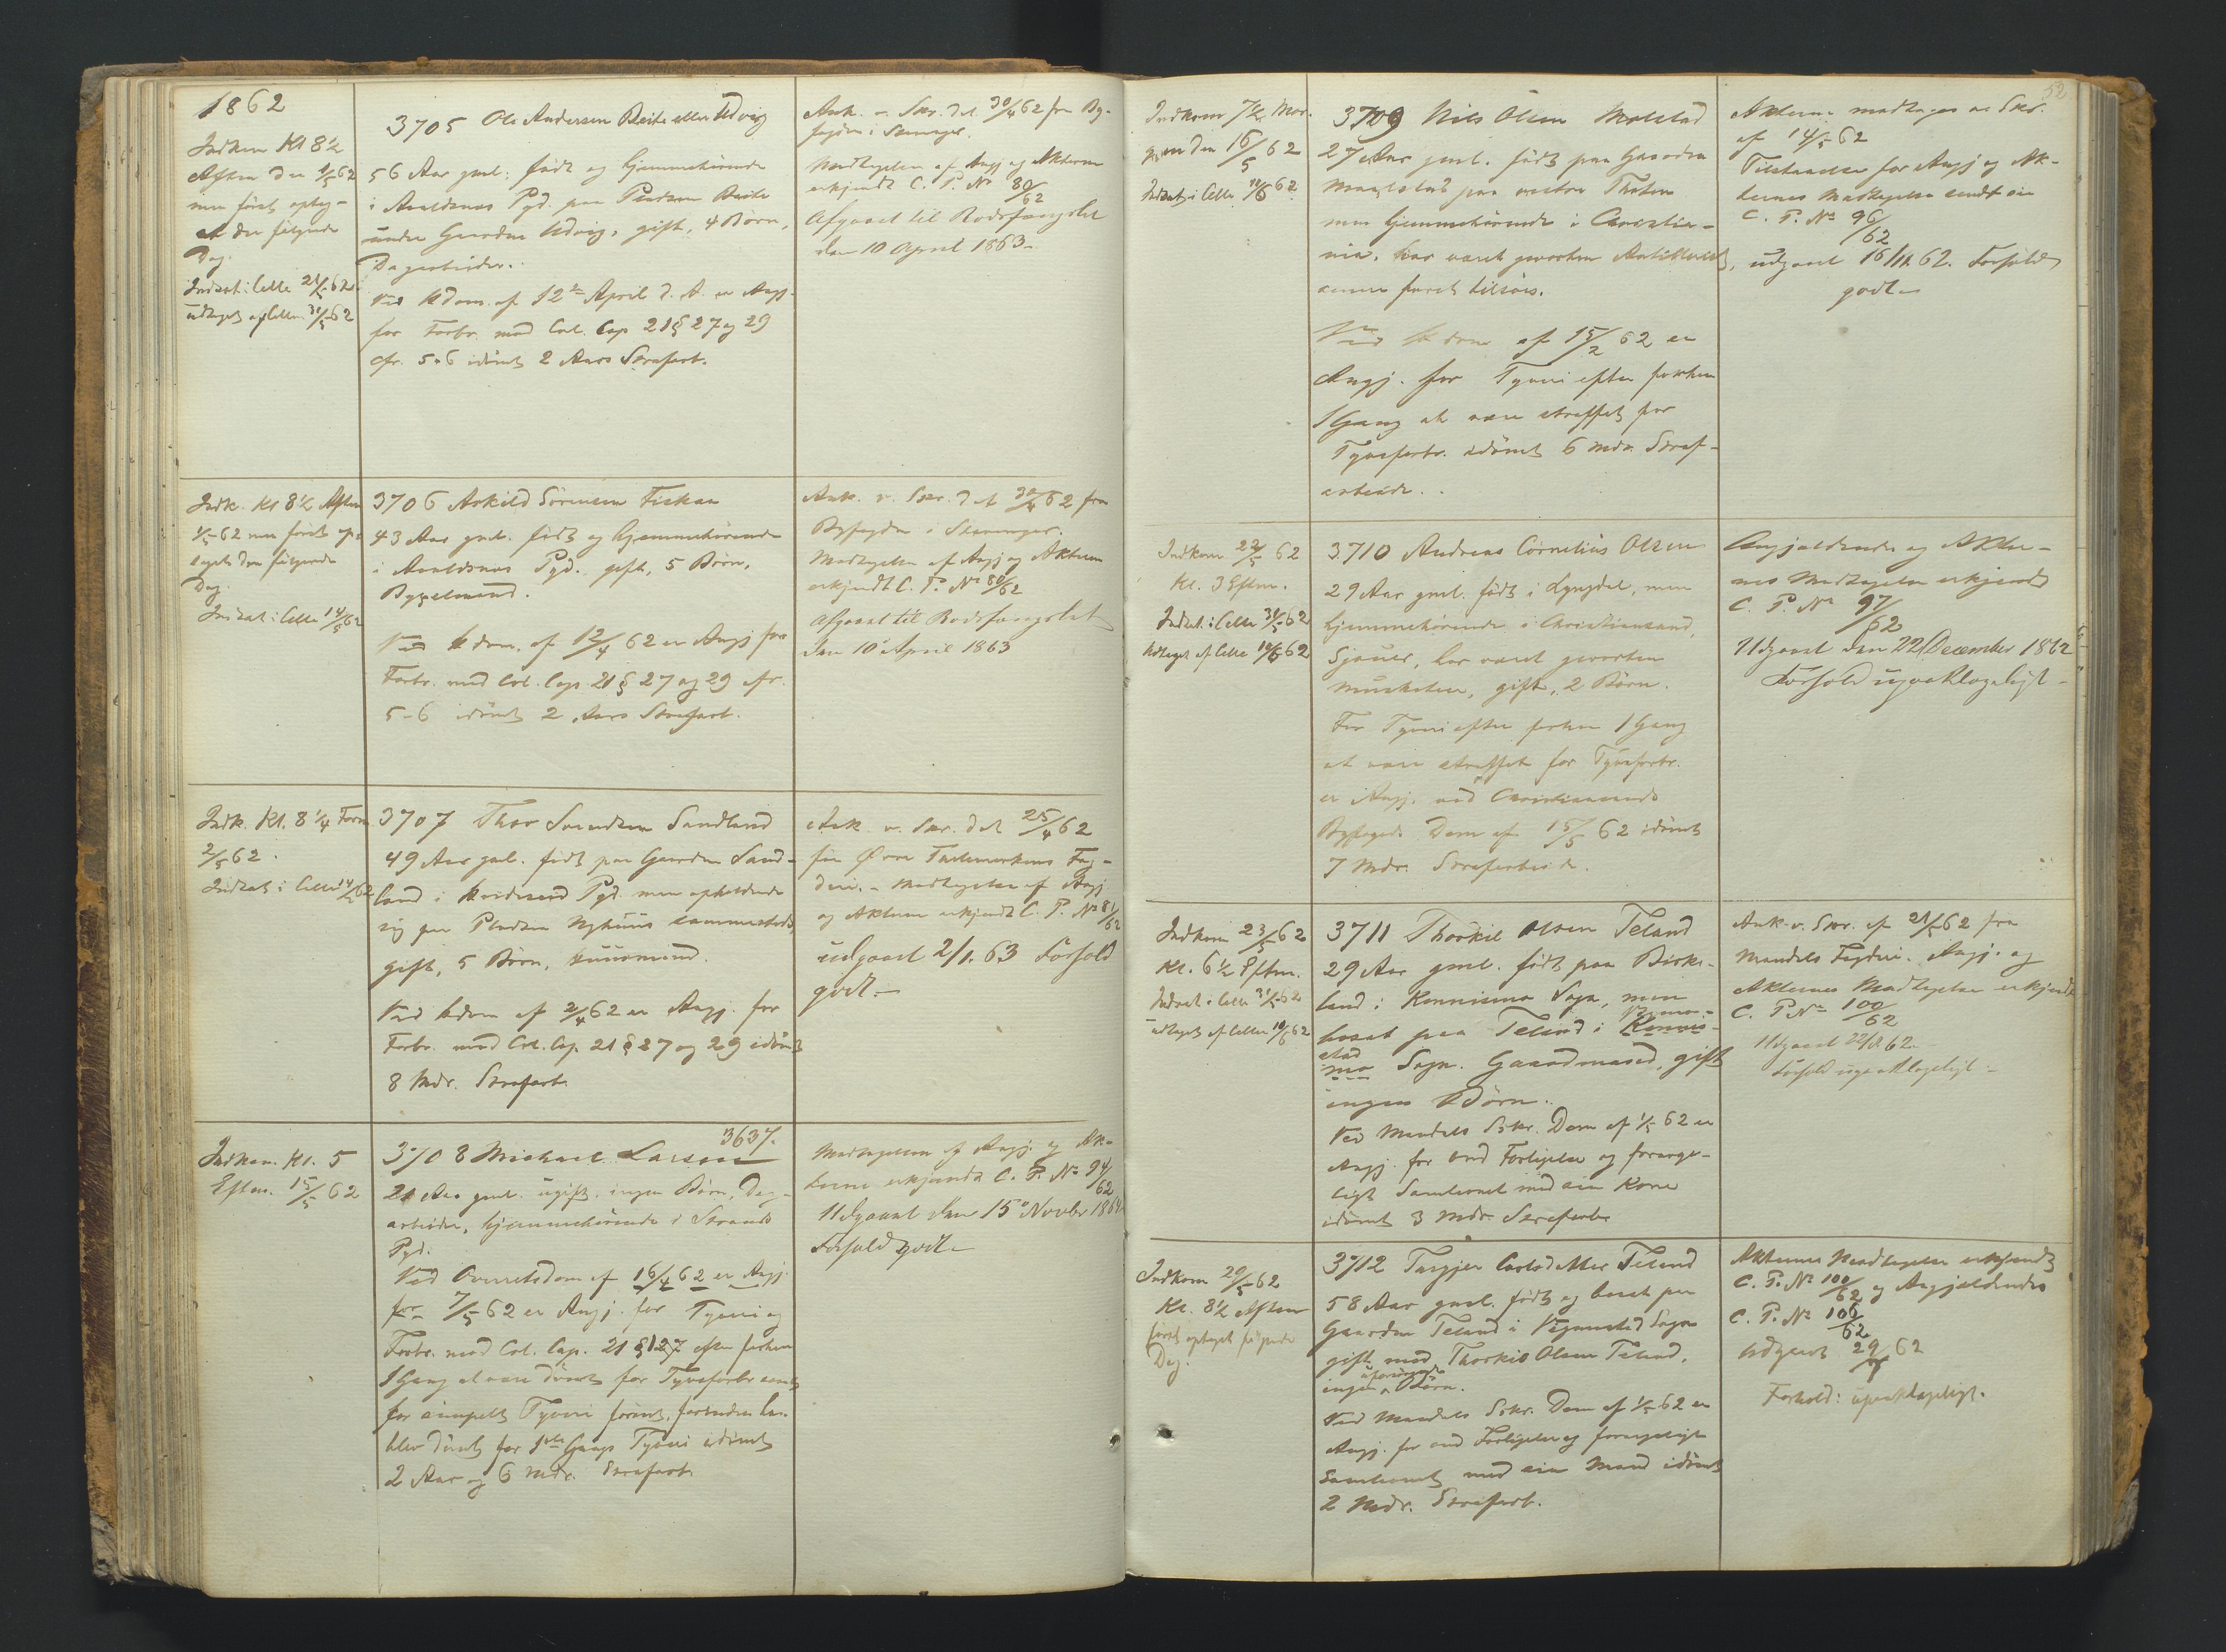 1862
Indkom Kl 8½
Aften den 1/5 62
men först optag-
et den fölgende
Dag.
Indsat i Celle 21/5 62
udtaget af Cellen 31/5 62
3705 Ole Andersen Beite eller Udvig
56 Aar gml: födt og hjemmehörende
i Avaldsnes Pgd. paa Pladsen Beite
under Gaarden Udvig, gift, 4 Börn,
Dagarbeider.
Ved Hdom. af 12te April d. A. er Angj.
for Forbr. mod Crl. Cap 21 § 27 og 29
cfr. 5-6 idömt 2 Aars Strafarb.
Ank. v. Skr. dat 30/4 62 fra By-
fogden i Stavanger.
Modtagelsen af Angj og Akterne
erkjendt C. P. No 80/62
Afgaaet til Bodsfængslet
den 10 April 1863-
Indk. Kl 8½ Aften
1/5 62 men först op-
taget den fölgende
Dag.
Indsat i Celle 14/5 62
3706 Askild Sörensen Fiskaa
43 Aar gml. födt og hjemmehörende
i Avaldsnes Pgd. gift, 5 Börn,
Bygselmand.
Ved Hdom. af 12/4 62 er Angj for
Forbr. mod Crl. Cap. 21 § 27 og 29 cfr.
5-6 idömt 2 Aars Strafarb.
Ank. v. Skr. dat 30/4 62 fra
Byfogden i Stavanger.
Modtagelsen af Angj og Akterne
erkjendt C. P. No 80/62
Afgaaet til Bodsfængslet
den 10 April 1863
Indk. Kl. 8¼ Form
2/5 62.
Indsat i Celle 14/5 62
3707 Thor Svendsen Sandland
49 Aar gml. födt paa Gaarden Sand-
land i Hvideseid Pgd. men opholdende
sig paa Pladsen Nyhuus sammesteds,
gift, 5 Börn, Huusmand.
Ved Hdom af 2/4 62 er Angj. for
Forbr. mod Crl. Cap. 21 § 27 og 29 idömt
8 Mdr. Strafarb.
Ank. v. Skr. dat 25/4 62
fra Övre Tellemarkens Fog-
deri. - Modtagelse af Angj
og Akterne erkjendt C. P. No 81/62
udgaaet 2/1. 63 Forhold
godt.-
Indkom. Kl. 5
Eftm. 15/5 62
3637.
3708 Michael Larsen
21 Aar gml. ugift. ingen Börn, Dag-
arbeider, hjemmehörende i Strands
Pgd.
Ved Overretsdom af 16/4 62 er Angj.
for 7/5 62 er Angj. for Tyveri og
Forbr. mod Crl. Cap. 21 § 27 efter forhen
1 Gang at være dömt for Tyvsforbr samt
for simpelt Tyveri förend, forinden han
blev dömt for 1ste Gangs Tyveri idömt
2 Aar og 6 Mdr. Strafarb.
Modtagelsen af Angj. og Ak-
terne erkjendt C. P. No 94/62
Udgaaet den 15 Novbr 1864
Forhold godt-
52
Indkom 7½ Mor-
gen den 16/5 62
Indsat i Celle 10/6 62.
3709 Nils Olsen Molstad
27 Aar gml. födt paa Gaarden
Molstad paa vestre Thoten
men hjemmehörende i Christia-
nia, har været gevorben Artillerist,
senere faret tilsöes.
Ved Hdom af 15/2 62 er
Angj. for Tyveri efter forhen
1 Gang at være straffet for
Tyvsforbr. idömt 6 Mdr. Straf-
arbeide..
Akterne modtages ved Skr.
af 14/5 62
Tilstaaelse for Angj og Ak-
ternes Modtagelse sendt
C. P. No 96/62
udgaaet 16/11. 62. Forhold
godt-
Indkom 22/5 62
Kl. 3 Eftm.
Indsat i Celle 31/5 62
Udtaget af Celle 10/6 62
3710 Andreas Cornelius Olsen
29 Aar gml. födt i Lyngdal, men
hjemmehörende i Christiansand,
Sjouer, har været gevorben
Musketeer, gift, 2 Börn.
For Tyveri efter forhen 1 Gang
at være straffet for Tyvsforbr.
er Angj. ved Christiansands
Byfogeds Dom af 15/5 62 idömt
7 Mdr. Strafarbeide.
Angjældendes og Akter-
nes Modtagelse erkjendt
C. P. No 97/62
Udgaaet den 22 December 1862
Forhold upaaklageligt-
Indkom 23/5 62
Kl. 6½ Eftm.
Indsat i Celle 31/5 62
udtaget af Cellen 10/6 62
3711 Thorkil Olsen Teland
29 Aar gml. födt paa Birke-
land i Konnismo Sogn, men
bosat paa Teland i Konnis-
Vigmo-
stad
mo Sogn. Gaardmand, gift
ingen Börn..
Ved Mandals Sskr. Dom af 1/5 62 er
Angj. for ond Forligelse og forarge-
ligt Samlevnet med sin Kone
idömt 3 Mdr. Strafarb.
Ank. v. Skr. af 21/5 62 fra
Mandals Fogderi. Angj. og
Akternes Modtagelse erkjendt
C. P. No 100/62
Udgaaet 22/8. 62.-
Forhold upaaklageligt-
Indkom 29/5 62
Kl. 8½ Aften
först optaget fölgende
Dag.
3712 Targjer Carlsdatter Teland
58 Aar gml. födt og bosat paa
Gaarden Teland i Vigmostad Sogn
gift med Thorkil Olsen Teland,
ingen uforsörgede Börn.
Ved Mandals Sskr. Dom af 1/5 62 er
Angj. for ond Forligelse og forargeligt
Samlevnet med sin Mand idömt
2 Mdr. Strafarb.
Akternes Modtagelse erkjendt
C. P. No 100/62 og Angjældendes
C. P. No 106/62
Udgaaet 29/7 62
Forhold: upaaklageligt.